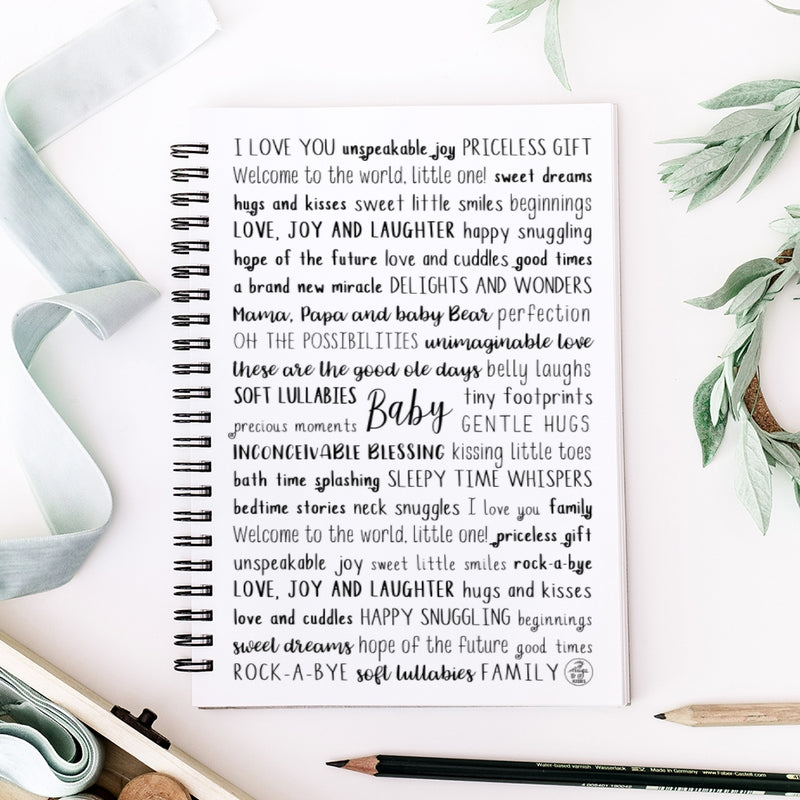 I LOVE YOU unspeakable joy PRICELESS GIFT
Welcome to the world, little one! sweet dreams
hugs and kisses sweet little smiles beginnings
LOVE, JOY AND LAUGHTER happy snuggling
hope of the future love and cuddles good times
a brand new miracle DELIGHTS AND WONDERS
Mama, Papa and baby Bear perfection
OH THE POSSIBILITIES unimaginable love
these are the good ole days belly laughs
SOFT LULLABIES tiny footprints
Baby
precious moments GENTLE HUGS
INCONCEIVABLE BLESSING kissing little toes
bath time splashing SLEEPY TIME WHISPERS
bedtime stories neck snuggles I love you family
Welcome to the world, little one! priceless gift
unspeakable joy sweet little smiles rock-a-bye
LOVE, JOY AND LAUGHTER hugs and kisses
love and cuddles HAPPY SNUGGLING beginnings
sweet dreams hope of the future good times
ROCK-A-BYE soft lullabies FAMILY
Water-based varnish Wasserlack Made in Germany www.Faber-Castell.com